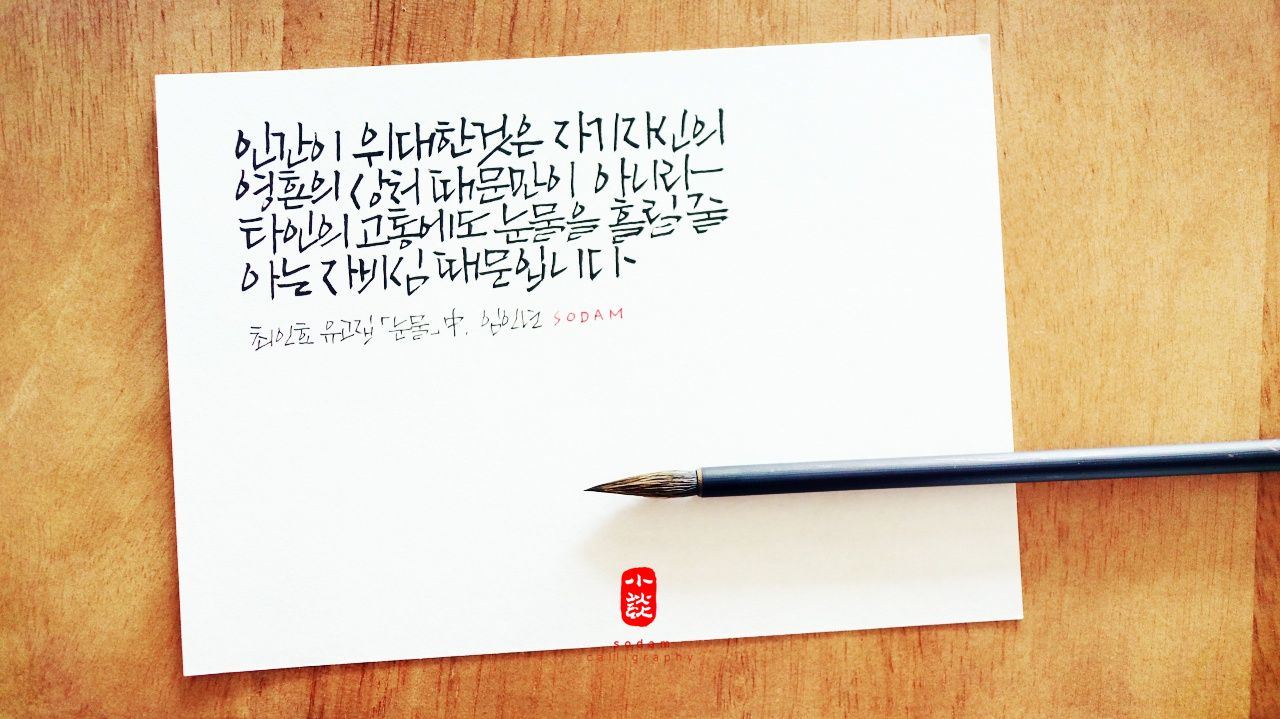 인간이 위대한것은 자기자신의
영혼의 상처 때문만이 아니라
타인의 고통에도 눈물을 흘릴줄
아는 자비심 때문입니다
최인호 유고집 「눈물」 中. 임인년 SODAM
小
談
sodam
calligraphy